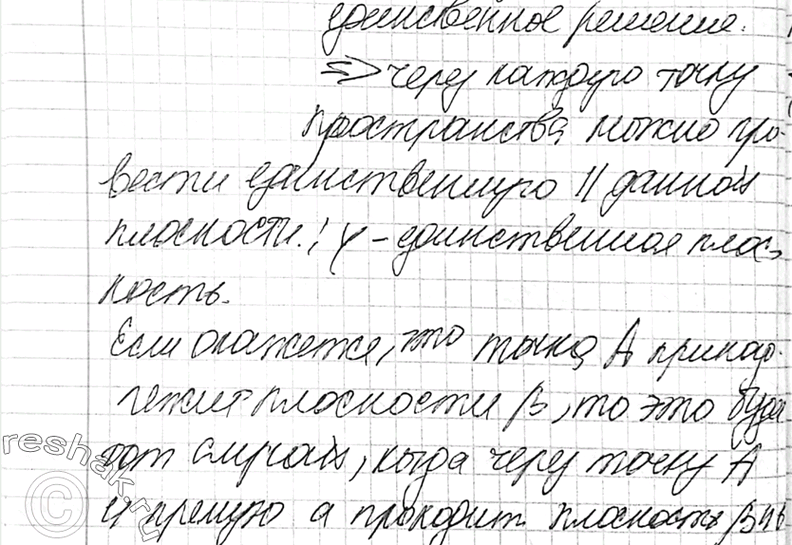 единственное решение.
=> через каждую точку
пространства можно про-
вести единственную || данной
плоскости. ! γ - единственная плос-
кость.
Если окажется, что точка А принад-
лежит плоскости β, то это буде
тот случай, когда через точку А
и прямую а проходит плоскость β
reshak.ru